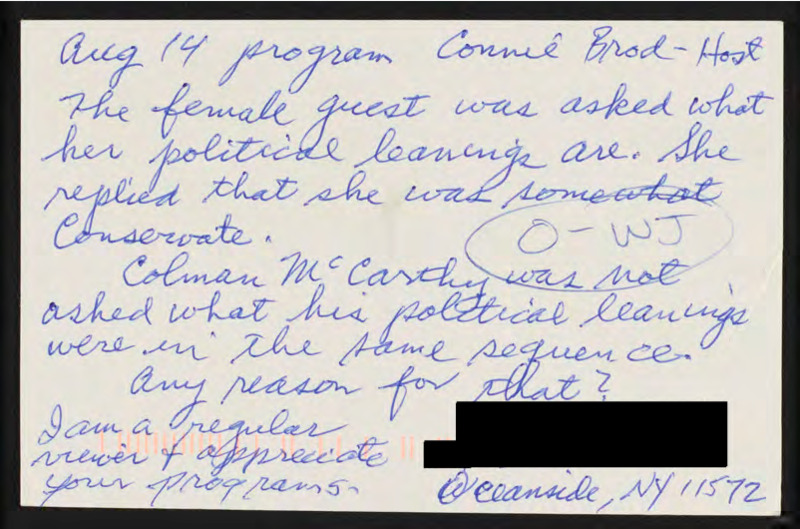 Aug 14 program Connie Brod - Host
The female guest was asked what
her political leanings are. She
replied that she was somewhat
Conservate.
O - WJ
Colman McCarthy was not
asked what his political leanings
were in the same sequence.
Any reason for that?
I am a regular
viewer + appreciate
your programs.
Oceanside, NY 11572